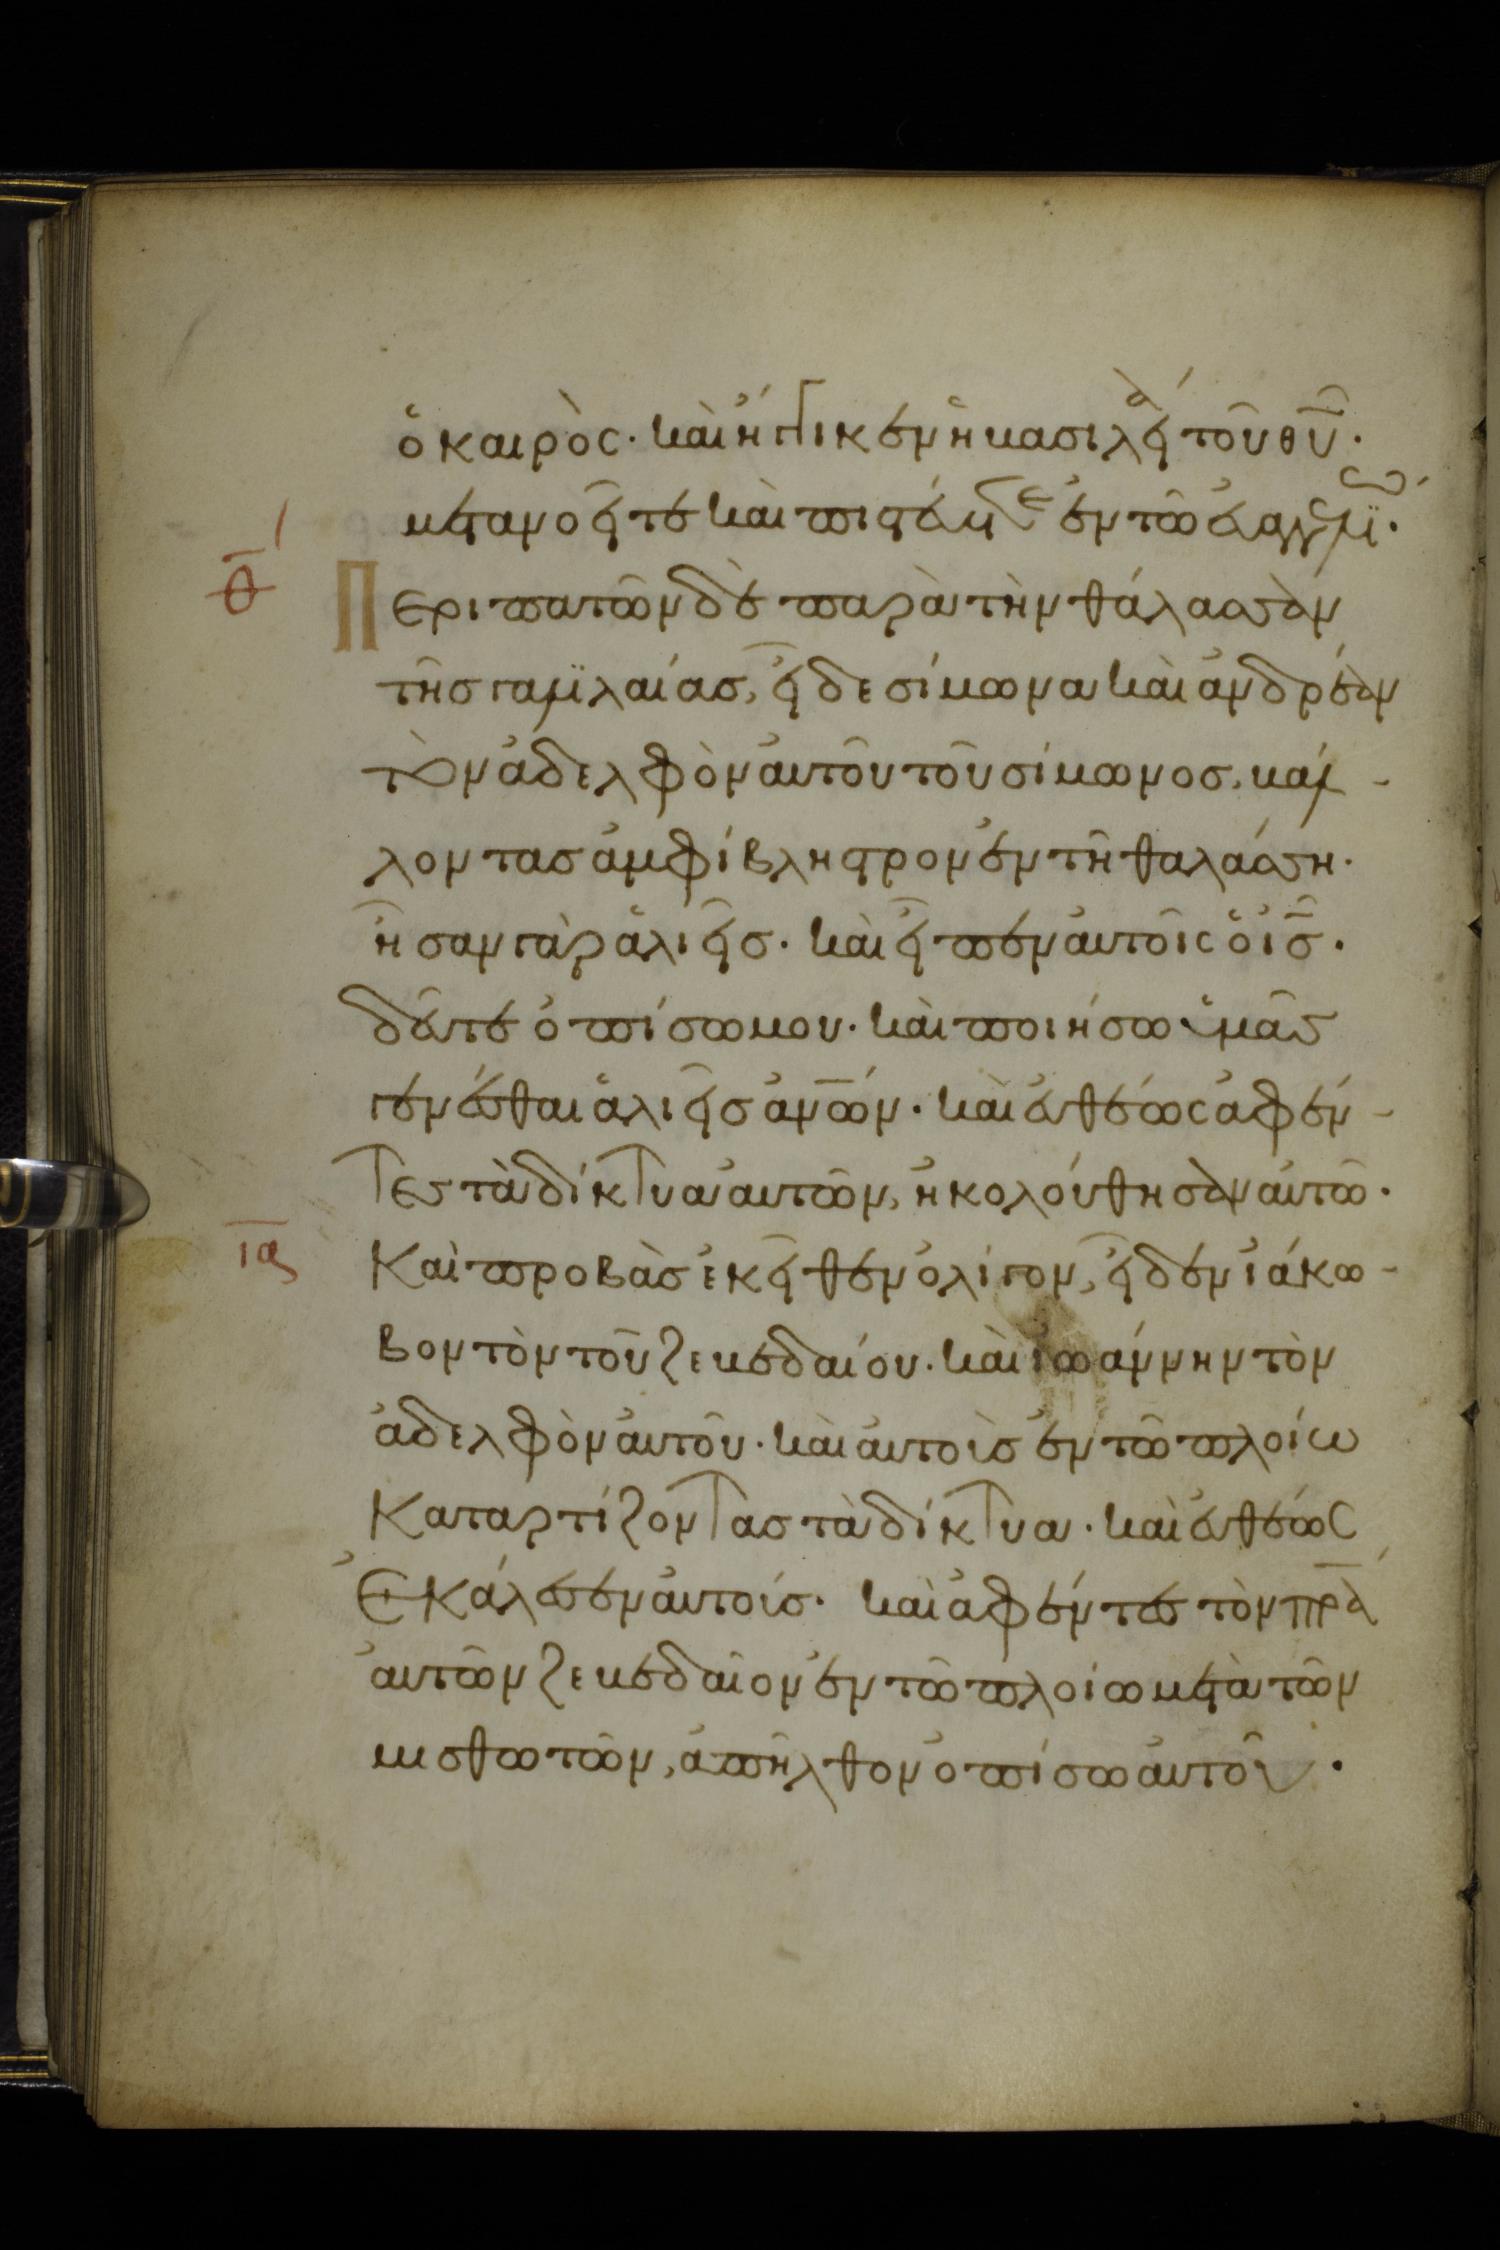 ὁ καιρὸς· καὶ ἤγγικεν ἡ βασιλεία τοῦ θυ·
μετανοεῖτε καὶ πιστεύετε ἐν τῶ εὐαγγελίω·
θ
Περιπατῶν δὲ παρὰ τὴν θάλασσαν
τῆς γαλιλαίας, εἶδε σίμωνα καὶ ἀνδρέαν
τὸν ἀδελφὸν αὐτοῦ τοῦ σίμωνος, βάλ-
λοντας ἀμφίβληστρον ἐν τῆ θαλάσση·
ἦσαν γὰρ ἁλιεῖς· καὶ εἶπεν αὐτοῖς ὁ ἰς·
δεῦτε ὀπίσω μου· καὶ ποιήσω ὑμᾶς
γενέσθαι ἁλιεῖς ἀνων· καὶ εὐθέως ἀφέν-
τες τὰ δίκτυα αὐτῶν, ἠκολούθησαν αὐτῶ·
ια
Καὶ προβὰς ἐκεῖθεν ὀλίγον, εἶδεν ἰάκω-
βον τὸν τοῦ ζεβεδαίου· καὶ ἰωάννην τὸν
ἀδελφὸν αὐτοῦ· καὶ αὐτοὺς ἐν τῶ πλοίω
καταρτίζοντας τὰ δίκτυα· καὶ εὐθέως
ἐκάλεσεν αὐτούς· καὶ ἀφέντες τὸν πρα
αὐτῶν ζεβεδαῖον ἐν τῶ πλοίω μετὰ τῶν
μισθωτῶν, ἀπῆλθον ὀπίσω αὐτοῦ·